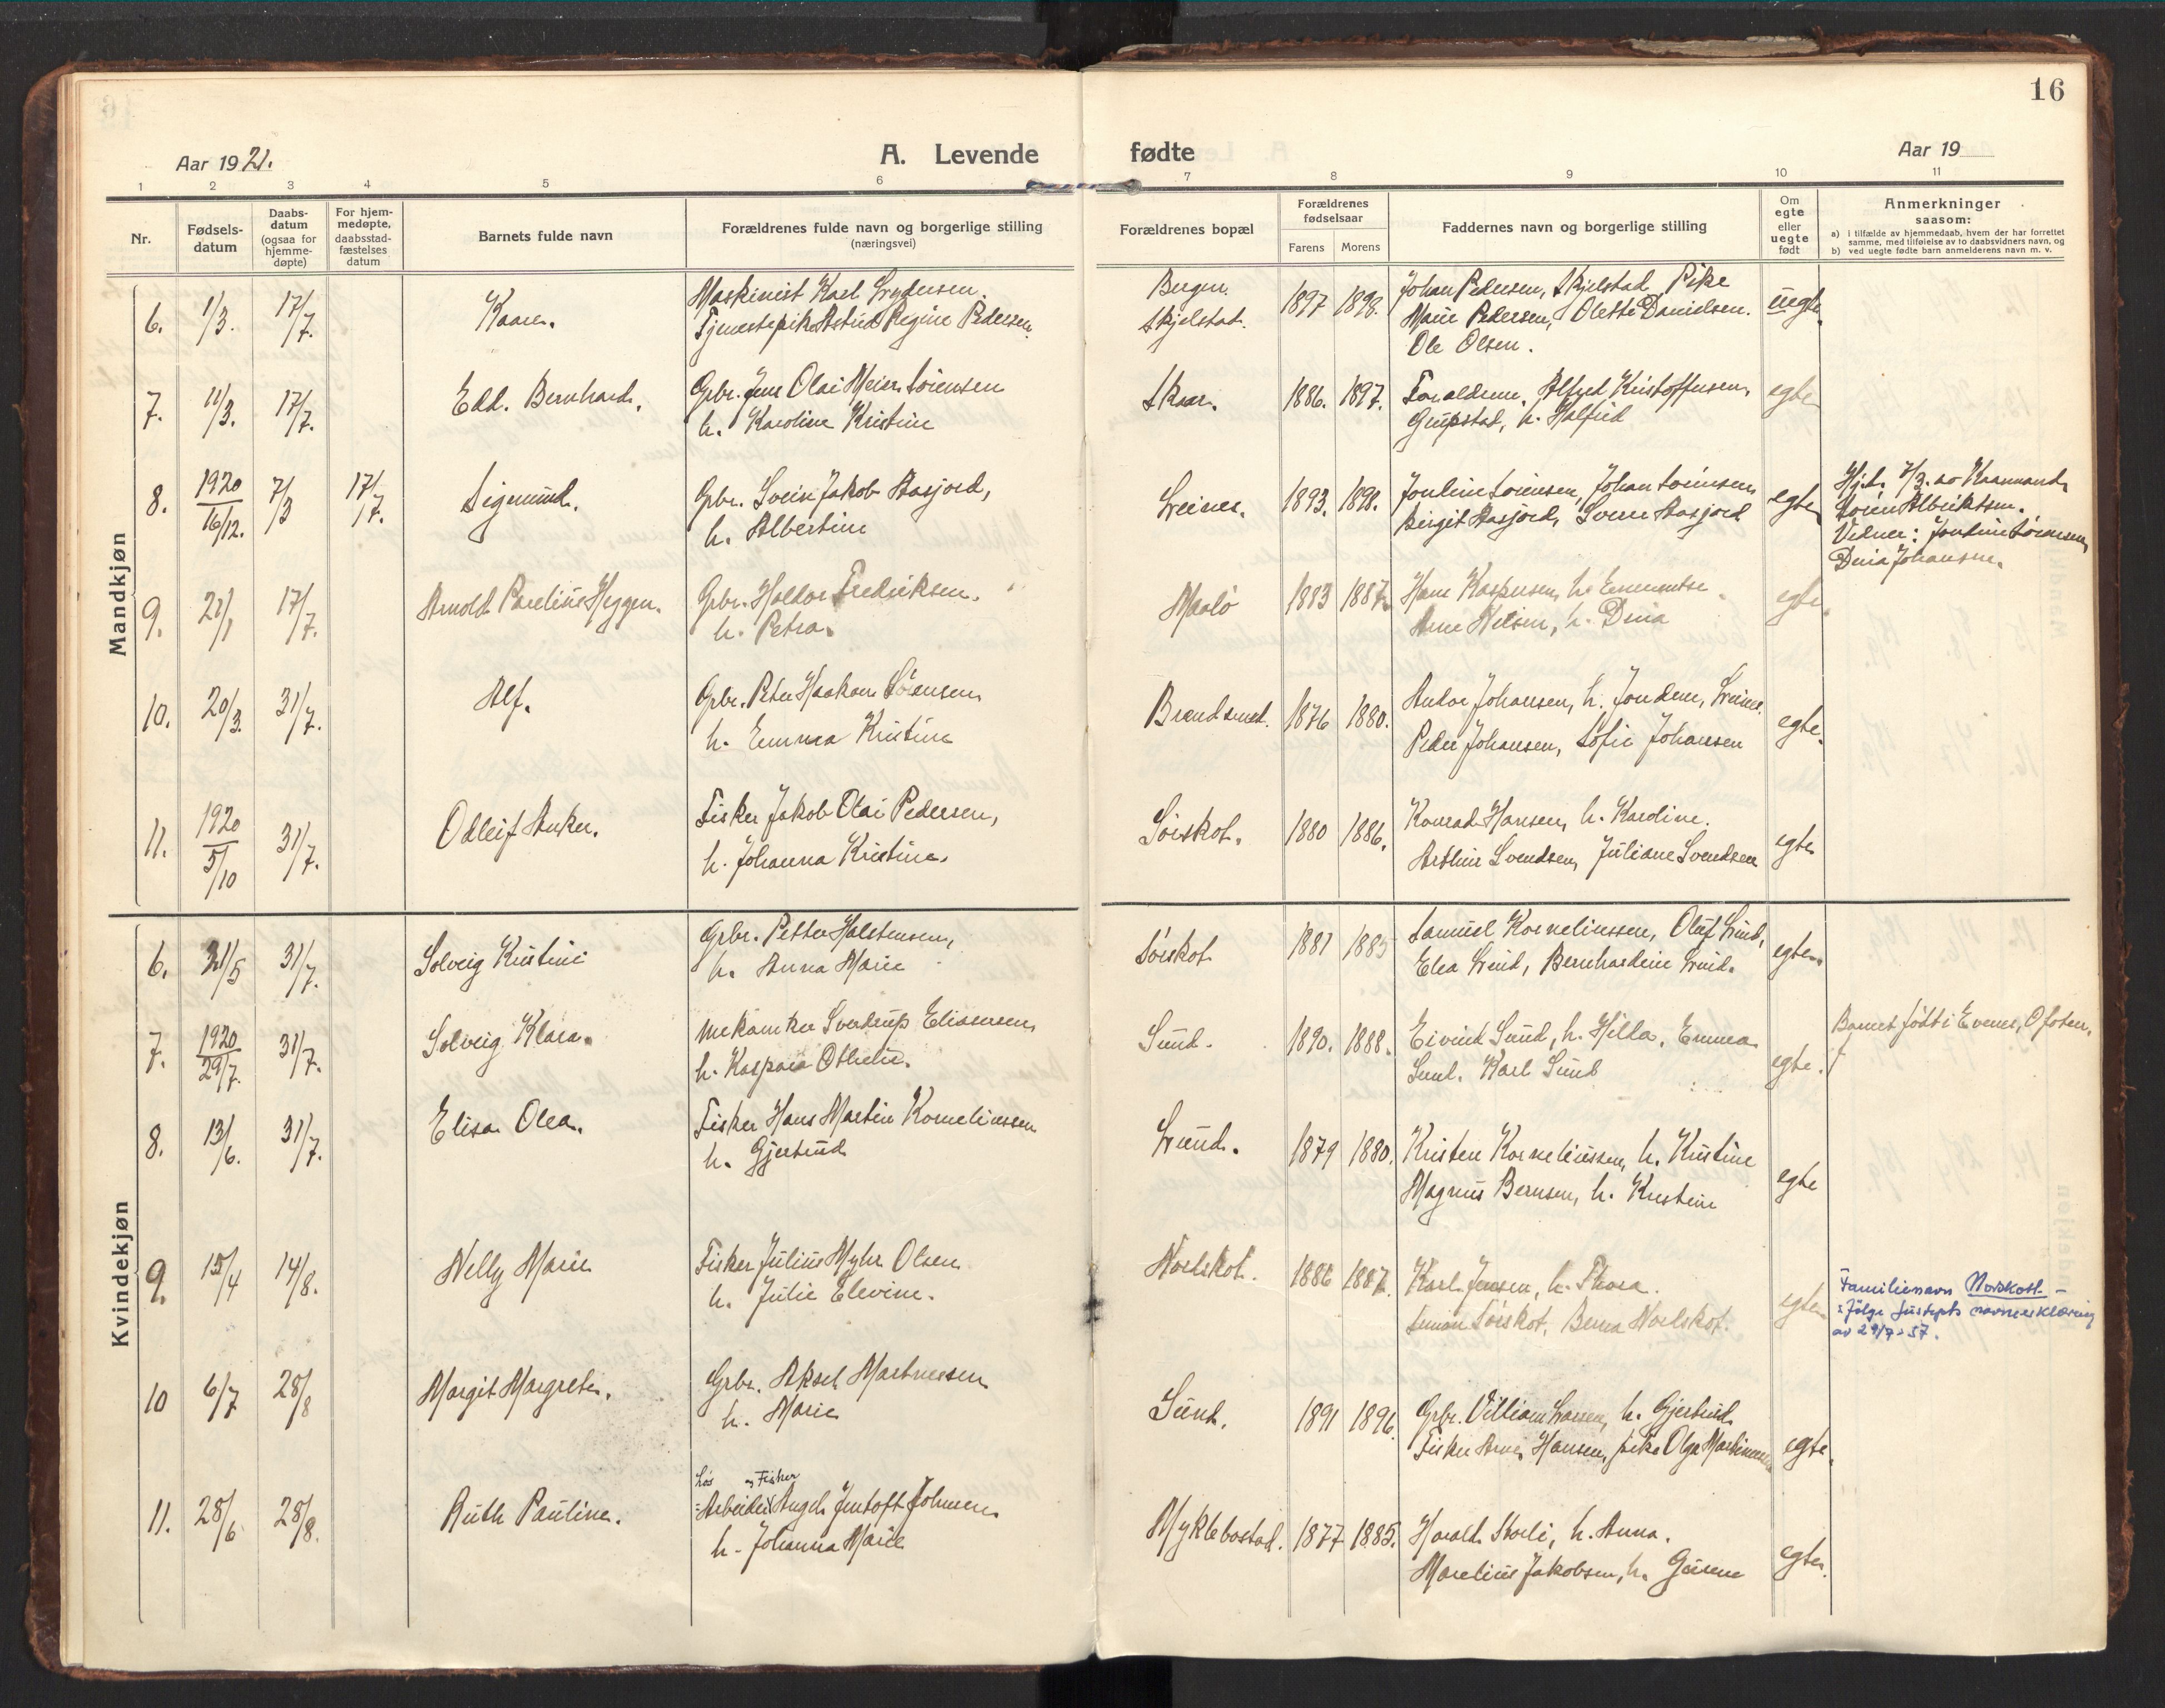 16
Aar 1921.
A. Levende fødte
Aar 19
1 2 3 4 5 6 7 8 9 10 11
Nr.
Fødsels-
datum
Daabs-
datum
(ogsaa for
hjemme-
døpte)
For hjem-
medøpte,
daabsstad-
fæstelses
datum
Barnets fulde navn
Forældrenes fulde navn og borgerlige stilling
(næringsvei)
Forældrenes bopæl
Forældrenes
fødselsaar
Farens Morens
Faddernes navn og borgerlige stilling
Om
egte
eller
uegte
født
Anmerkninger
saasom:
a) i tilfælde av hjemmedaab, hvem der har forrettet
samme, med tilføielse av to daabsvidners navn, og
b) ved uegte fødte barn anmelderens navn m. v.
Mandkjøn
6. 1/3. 17/7. Kaare. Maskinist Karl
Tjenestepike Astrid Regine Pedersen.
Bergen.
Skjelstad. 1897 1898. Johan Pedersen, Skjelstad, Pike
Marie Pedersen, Olette Danielsen.
Ole Olsen.
uegte
7. 11/3. 17/7. Edd. Bernhard. Gbr. Jens Olai Meier Sörensen
h. Karoline Kristine
Skaar. 1886. 1897. Forældrene, Alfred Kristoffersen,
h. Halfrid
egte
8. 1920 16/12. 7/3 17/7. Sigmund. Gbr. Svein Jakob Aasjord,
h. Albertine
Leines. 1893. 1898. Jordine Sörensen, Johan Sörensen
Birgit Aasjord, Sverre Aasjord
egte
Hjd. 7/3. av
Sören Albriktsen.
Vidner: Jordine Sörensen,
Dina Johansen.
9. 21/1 17/7. Arnold Parelius Heggen. Gbr. Haldor Fredriksen.
h. Petra.
Maalö 1883 1887. Hans Kaspersen, h.
Arne Nilsen, h. Dina
egte.
10. 20/3. 31/7. Alf. Gbr. Peter Haakon Sörensen
h. Emma Kristine
Brendsund. 1876 1880. Andor Johansen, h. Jordine, Leines.
Peder Johansen, Sofie Johansen
egte.
11. 1920 5/10 31/7. Odleif Anker. Fisker Jakob Olai Pedersen,
h. Johanna Kristine.
Sörskot. 1880 1886. Konrad Hansen, h. Karoline.
Arthur Svendsen, Juliane Svendsen
egte
Kvindekjøn
6. 21/5 31/7. Solveig Kristine Gbr. Petter Holstensen,
h. Anna Marie
Sörskot 1881 1885 Samuel Korneliussen, Oluf Lund,
Elea Lund, Bernhardine Lund.
egte
7. 1920 29/7. 31/7. Solveig Klara. Mekaniker Sverdrup Eliassen
h. Kaspara Othelie.
Sund. 1890. 1888. Eivind Sund, h. Hilda, Emma
Sund. Karl Sund
egte.
Barnet födt i Evenes, Ofoten.
8. 13/6. 31/7. Elisa Olea. Fisker Hans Martin Korneliussen
h. Gjertrud
Lund. 1879 1880. Kristen Korneliussen, h. Kristine
Magnus Bernsen, h. Kristine
egte
9. 15/4 14/8. Nelly Marie Fisker Julius Myhr Olsen
h. Julie Elevine.
Nordskot. 1886 1887. Karl Jensen, h. Thora.
Simon Sörskot, Berna Nordskot.
egte
Familienavn Nordskott -
i følge Justdpts navneerklæring
av 29/7-57.
10 6/7 28/8 Margit Margrete. Gbr. Aksel Martinussen
h. Marie
Sund. 1891 1896. Gbr. Villiam Larsen, h. Gjertrud
Fisker Arne Hansen, pike Olga Martinussen
egte.
11. 28/6 28/8. Ruth Pauline. Løs og Fisker
Arbeider Angel Jentoft Johnsen
h. Johanna Marie
Myklebostad. 1877 1885. Harald Skorli, h. Anna.
Marelius Jakobsen, h. Gurine
egte.